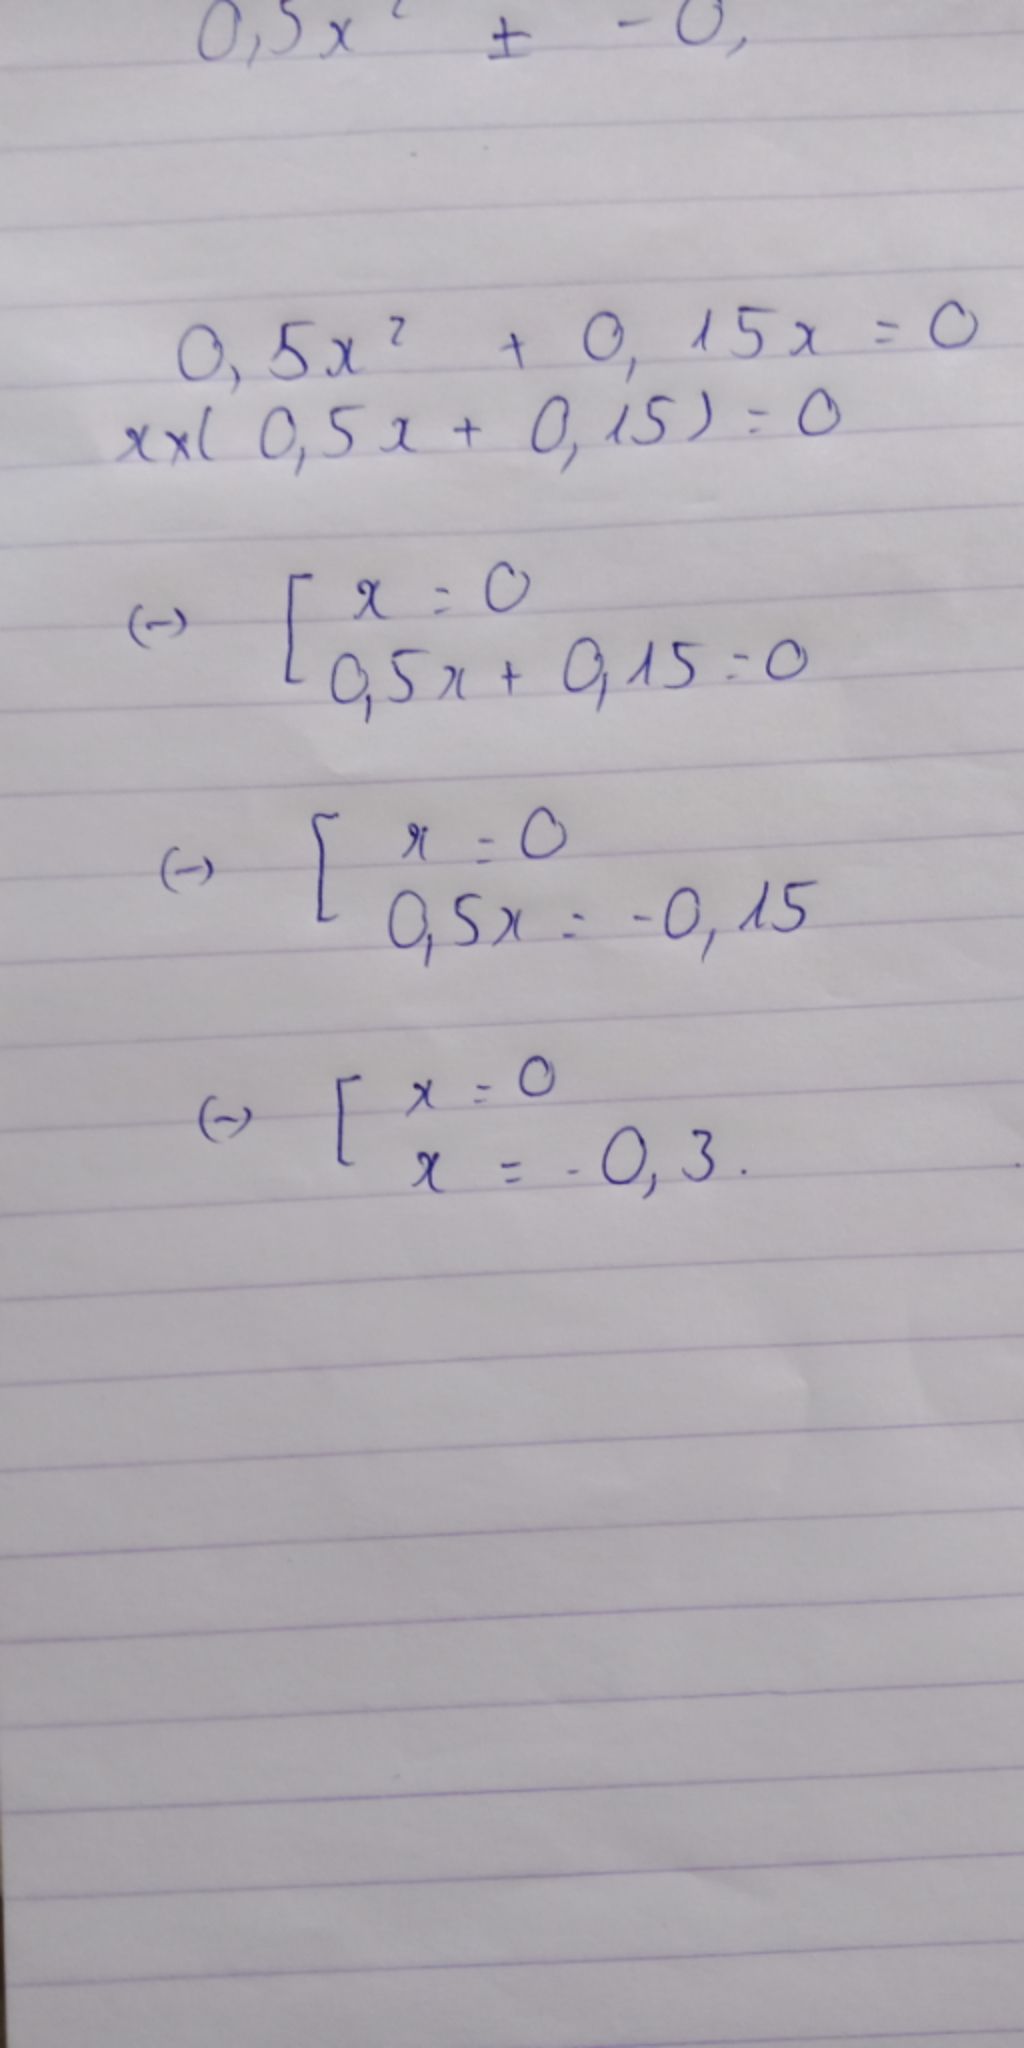 0,5x² ± -0,
0,5x² + 0,15x = 0
x×( 0,5x + 0,15) = 0
(-) [ x = 0
0,5x + 0,15 = 0
(-) [ x = 0
0,5x = -0,15
(-) [ x = 0
x = -0,3.